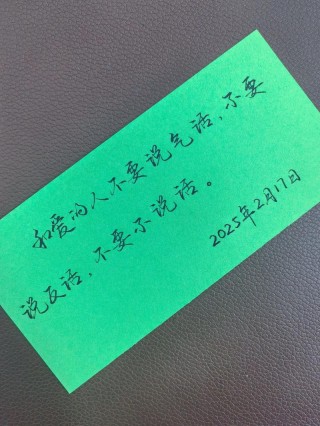 和爱的人不要说气话，不要
说反话，不要不说话。
2025年2月17日